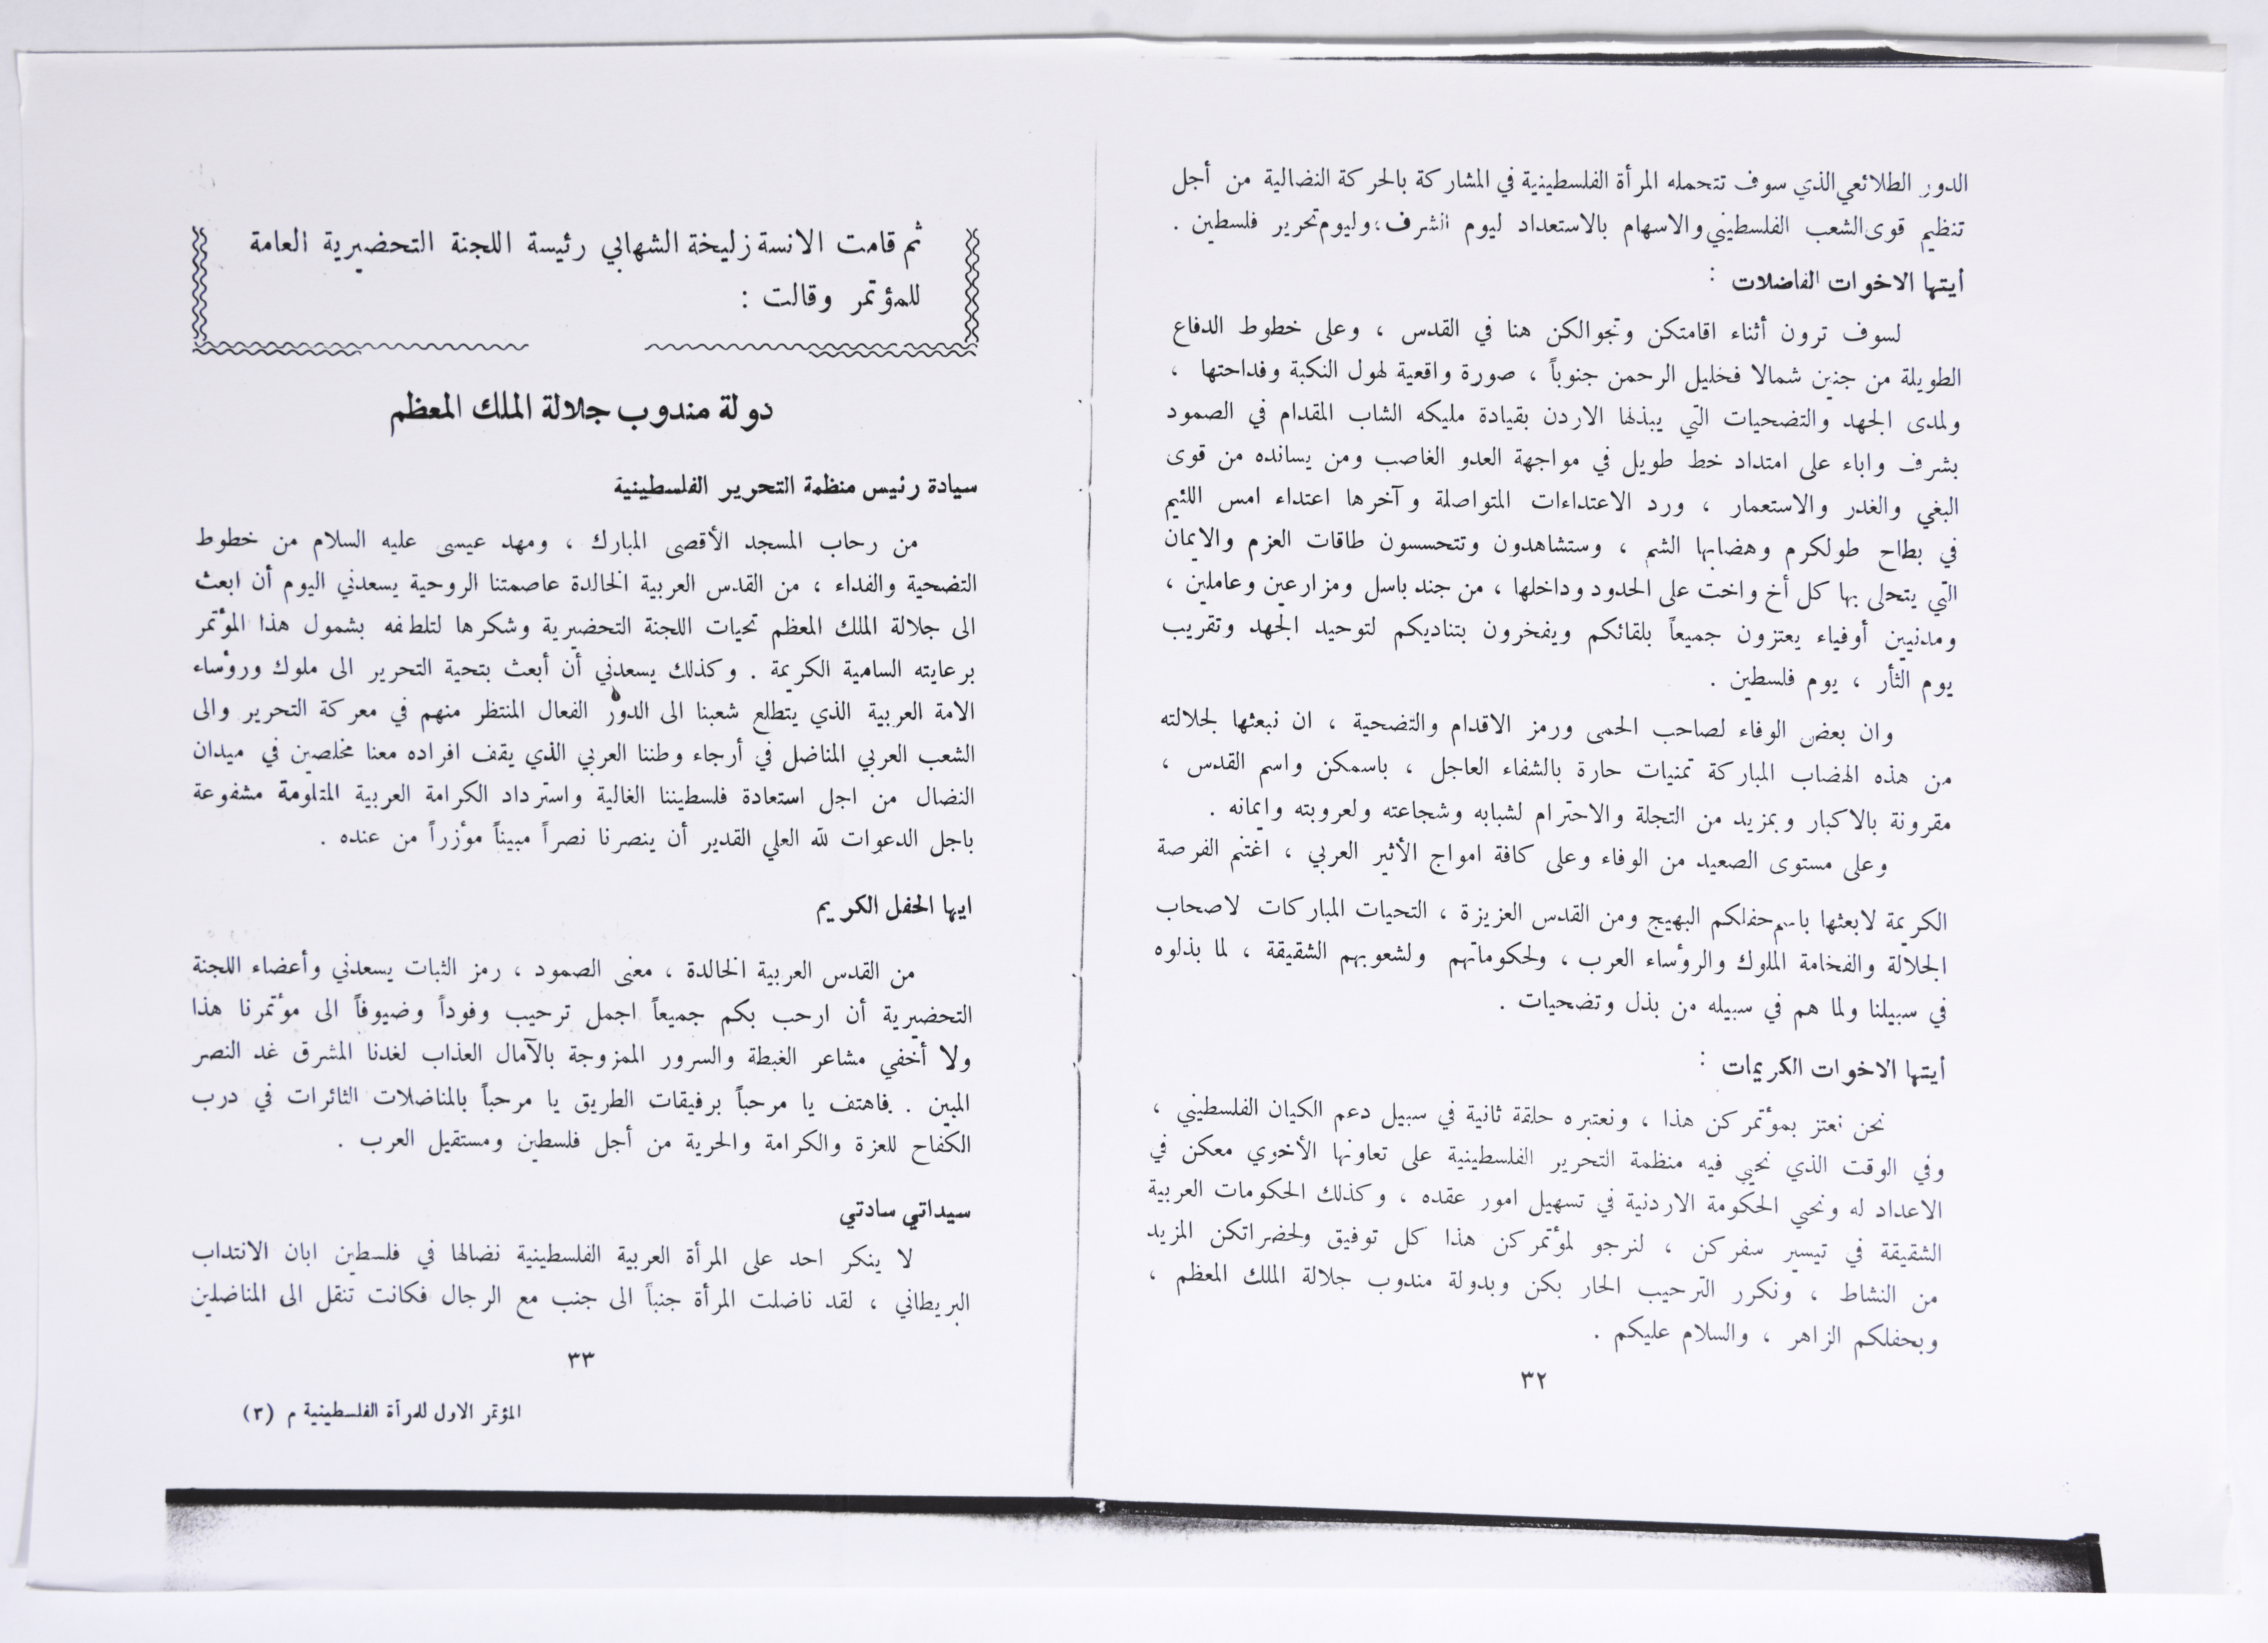 الدور الطلائعي الذي سوف تتحمله المرأة الفلسطينية في المشاركة بالحركة النضالية من أجل
تنظيم قوى الشعب الفلسطيني والاسهام بالاستعداد ليوم الشرف، وليوم تحرير فلسطين .
أيتها الاخوات الفاضلات :
لسوف ترون أثناء اقامتكن وتجوالكن هنا في القدس ، وعلى خطوط الدفاع
الطويلة من جنين شمالا فخليل الرحمن جنوباً ، صورة واقعية لهول النكبة وفداحتها ،
ولمدى الجهد والتضحيات التي يبذلها الاردن بقيادة مليكه الشاب المقدام في الصمود
بشرف واباء على امتداد خط طويل في مواجهة العدو الغاصب ومن يسانده من قوى
البغي والغدر والاستعمار ، ورد الاعتداءات المتواصلة وآخرها اعتداء امس اللئيم
في بطاح طولكرم وهضابها الشم ، وستشاهدون وتتحسسون طاقات العزم والايمان
التي يتحلى بها كل أخ واخت على الحدود وداخلها ، من جند باسل ومزارعين وعاملين ،
ومدنيين أوفياء يعتزون جميعاً بلقائكم ويفخرون بتناديكم لتوحيد الجهد وتقريب
يوم الثأر ، يوم فلسطين .
وان بعض الوفاء لصاحب الحمى ورمز الاقدام والتضحية ، ان نبعثها لجلالته
من هذه الهضاب المباركة تمنيات حارة بالشفاء العاجل ، باسمكن واسم القدس ،
مقرونة بالاكبار وبمزيد من التجلة والاحترام لشبابه وشجاعته ولعروبته وايمانه .
وعلى مستوى الصعيد من الوفاء وعلى كافة امواج الأثير العربي ، اغتنم الفرصة
الكريمة لابعثها باسم حفلكم البهيج ومن القدس العزيزة ، التحيات المباركات لاصحاب
الجلالة والفخامة الملوك والرؤساء العرب ، ولحكوماتهم ولشعوبهم الشقيقة ، لما بذلوه
في سبيلنا ولما هم في سبيله من بذل وتضحيات .
أيتها الاخوات الكريمات :
نحن نعتز بمؤتمركن هذا ، ونعتبره حلقة ثانية في سبيل دعم الكيان الفلسطيني ،
وفي الوقت الذي نحيي فيه منظمة التحرير الفلسطينية على تعاونها الأخوي معكن في
الاعداد له ونحيي الحكومة الاردنية في تسهيل امور عقده ، وكذلك الحكومات العربية
الشقيقة في تيسير سفركن ، لنرجو لمؤتمركن هذا كل توفيق ولحضراتكن المزيد
من النشاط ، ونكرر الترحيب الحار بكن وبدولة مندوب جلالة الملك المعظم ،
وبحفلكم الزاهر ، والسلام عليكم .
٣٢
ثم قامت الانسة زليخة الشهابي رئيسة اللجنة التحضيرية العامة
للمؤتمر وقالت :
دولة مندوب جلالة الملك المعظم
سيادة رئيس منظمة التحرير الفلسطينية
من رحاب المسجد الأقصى المبارك ، ومهد عيسى عليه السلام من خطوط
التضحية والفداء ، من القدس العربية الخالدة عاصمتنا الروحية يسعدني اليوم أن ابعث
الى جلالة الملك المعظم تحيات اللجنة التحضيرية وشكرها لتلطفه بشمول هذا المؤتمر
برعايته السامية الكريمة . وكذلك يسعدني أن أبعث بتحية التحرير الى ملوك ورؤساء
الامة العربية الذي يتطلع شعبنا الى الدور الفعال المنتظر منهم في معركة التحرير والى
الشعب العربي المناضل في أرجاء وطننا العربي الذي يقف افراده معنا مخلصين في ميدان
النضال من اجل استعادة فلسطيننا الغالية واسترداد الكرامة العربية المثلومة مشفوعة
باجل الدعوات لله العلي القدير أن ينصرنا نصراً مبيناً مؤزراً من عنده .
ايها الحفل الكريم
من القدس العربية الخالدة ، معنى الصمود ، رمز الثبات يسعدني وأعضاء اللجنة
التحضيرية أن ارحب بكم جميعاً اجمل ترحيب وفوداً وضيوفاً الى مؤتمرنا هذا
ولا أخفي مشاعر الغبطة والسرور الممزوجة بالآمال العذاب لغدنا المشرق غد النصر
المبين . فاهتف يا مرحباً برفيقات الطريق يا مرحباً بالمناضلات الثائرات في درب
الكفاح للعزة والكرامة والحرية من أجل فلسطين ومستقيل العرب .
سيداتي سادتي
لا ينكر احد على المرأة العربية الفلسطينية نضالها في فلسطين ابان الانتداب
البريطاني ، لقد ناضلت المرأة جنباً الى جنب مع الرجال فكانت تنقل الى المناضلين
٣٣
المؤتمر الاول للمرأة الفلسطينية م (٣)